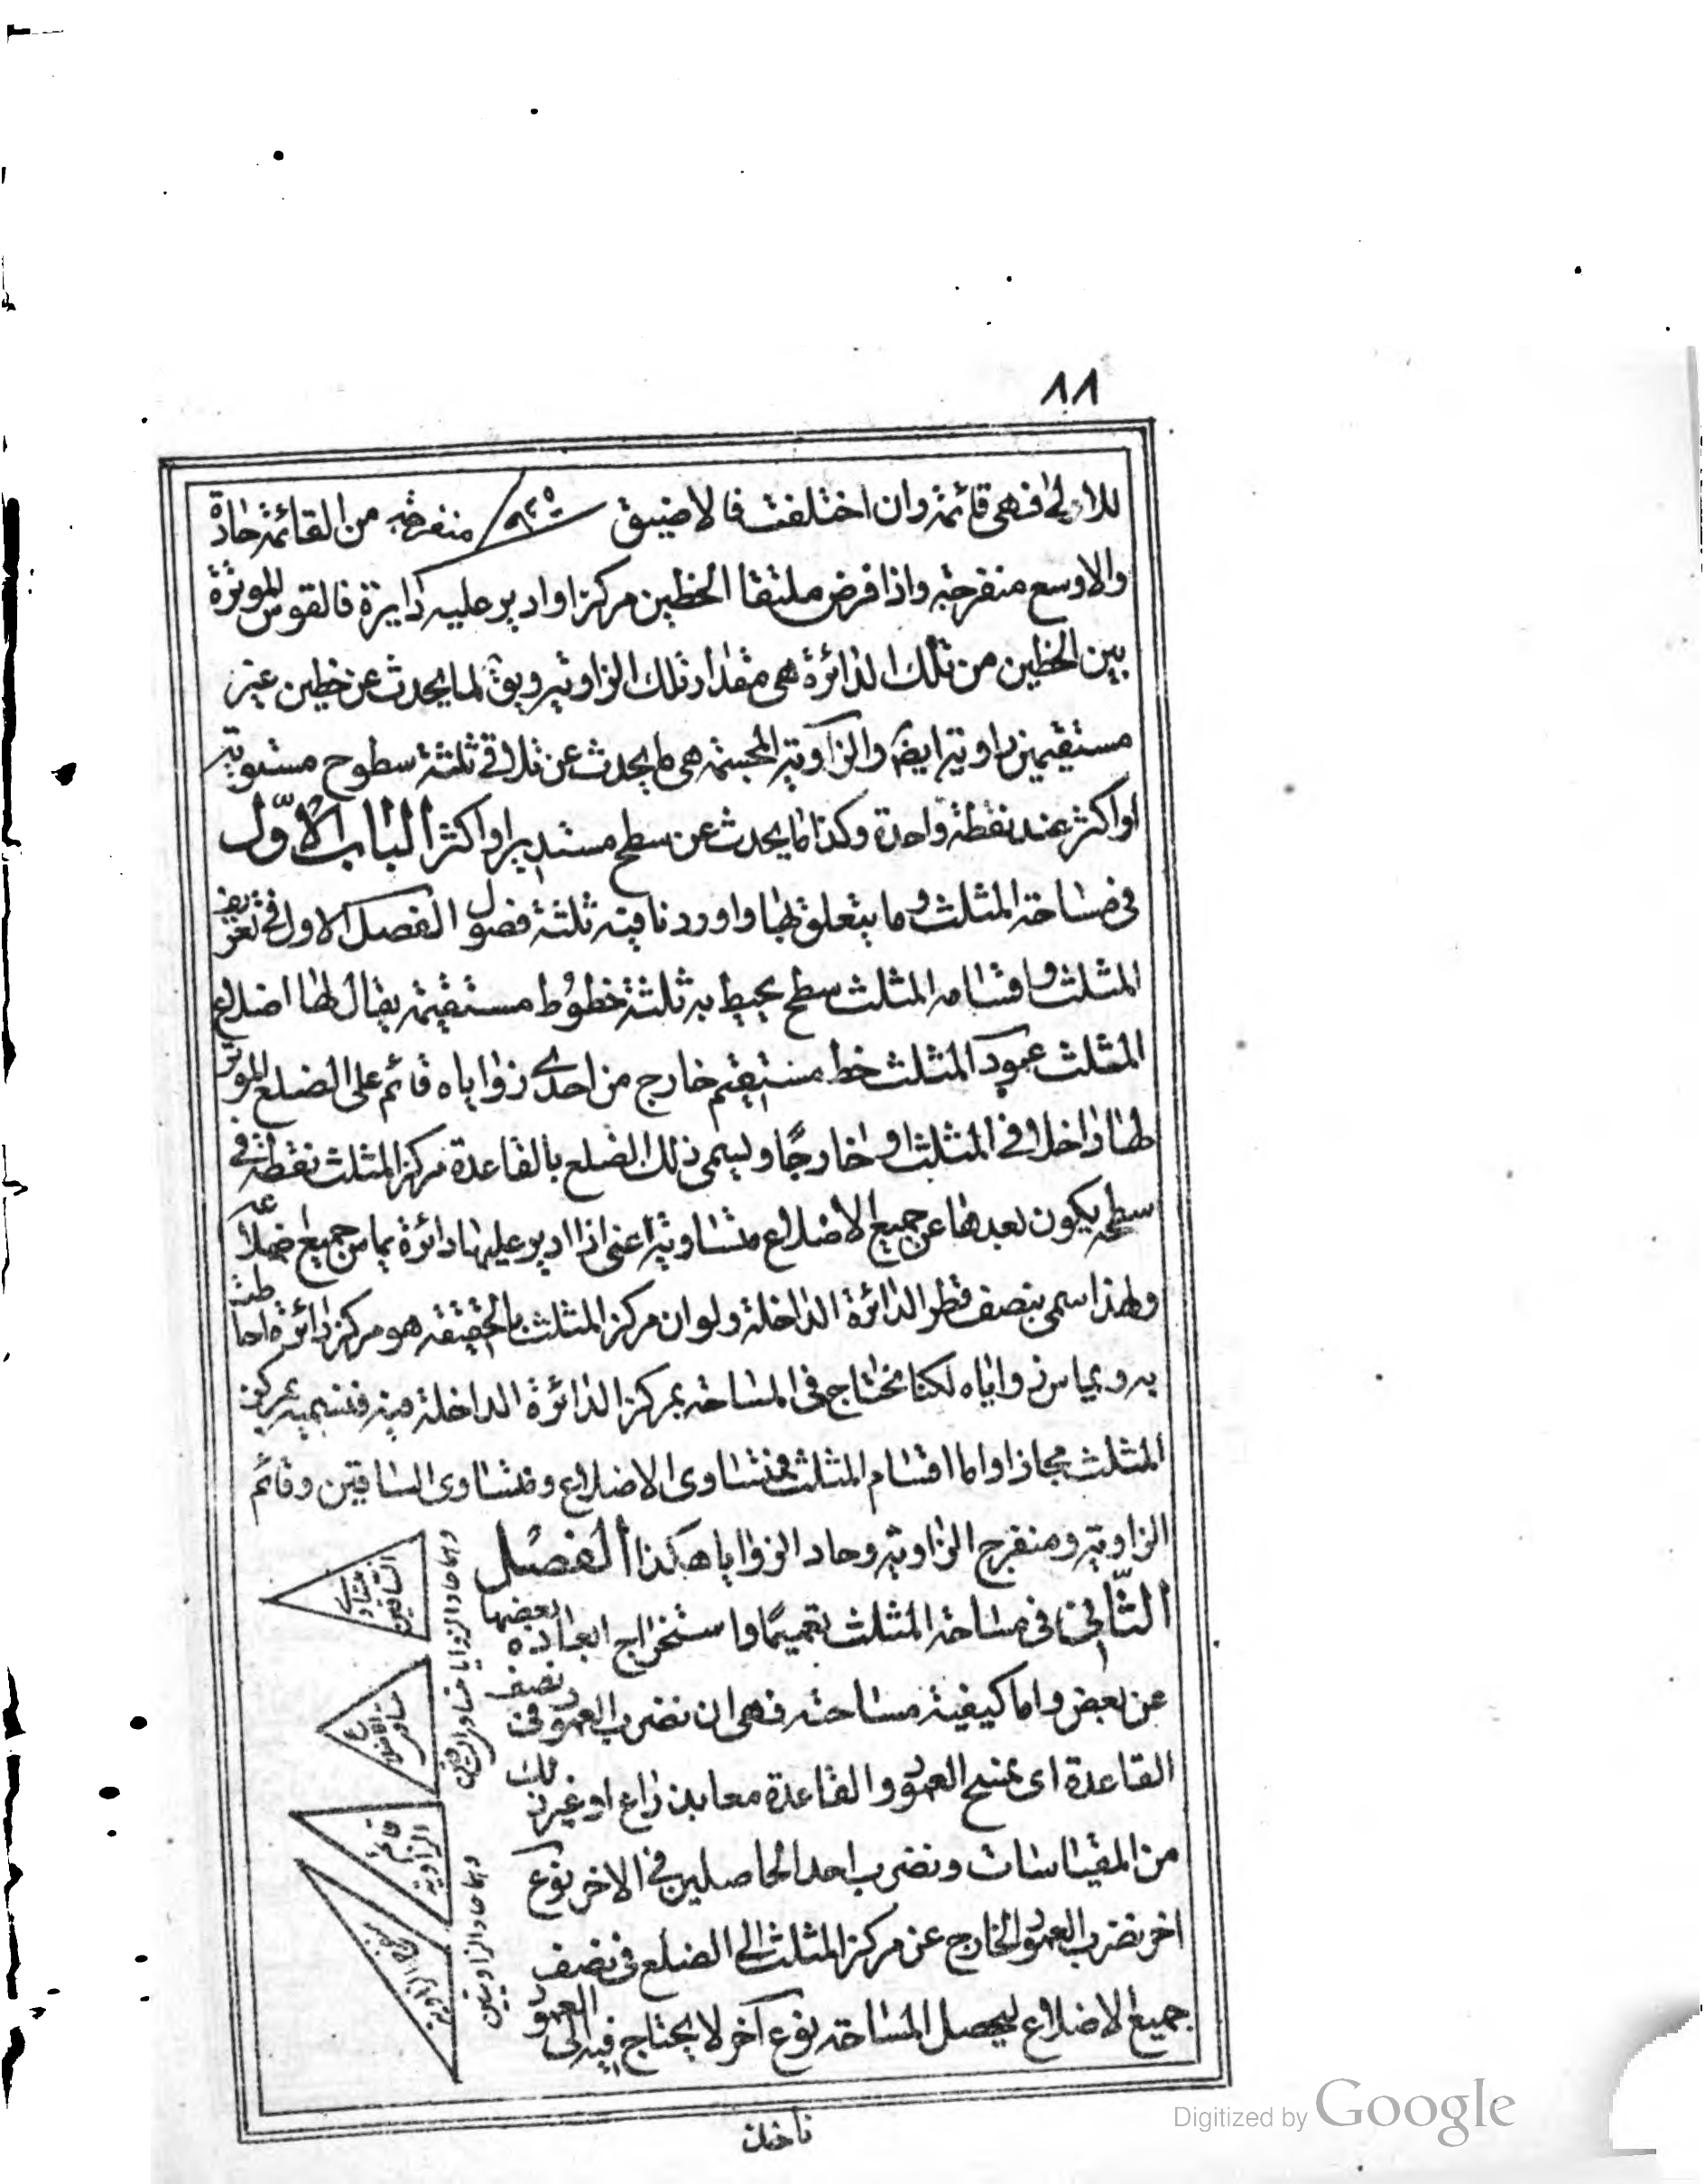 ٨٨
للاولى فهى قائمة وان اختلفت فالاضيق منفرجة من القائمة حادة
والاوسع منفرجة واذا فرض ملتقا الخطين مركزا وادير عليه دايرة فالقوس الموترة
بين الخطين من تلك الدائرة هى مقدار تلك الزاوية ويق لما يحدث عن خطين غير
مستقيمين زاوية ايضا والزاوية المجسمة هى ما يحدث عن تلاقى ثلثة سطوح مستوية
او اكثر عند نقطة واحدة وكذا ما يحدث عن سطح مستدير او اكثر الباب الاوّل
فى مساحة المثلث وما يتعلق بها واوردنا فيه ثلثة فصول الفصل الاول فى تعريف
المثلث واقسامه المثلث سطح يحيط به ثلثة خطوط مستقيمة يقال لها اضلاع
المثلث عمود المثلث خط مستقيم خارج من احدى زواياه قائم على الضلع الموتر
لها داخلا فى المثلث او خارجًا ويسمى ذلك الضلع بالقاعدة مركز المثلث نقطة فى
سطحه يكون بعدها عن جميع الاضلاع متساوية اعنى اذا ادير عليها دائرة يماس جميع اضلاعه
ولهذا سمى بنصف قطر الدائرة الداخلة ولو ان مركز المثلث بالحقيقة هو مركز دائرة احاطت
به ويماس زواياه لكنا نحتاج فى المساحة بمركز الدائرة الداخلة فيه فنسميه بمركز
المثلث مجازا واما اقسام المثلث فمتساوى الاضلاع ومتساوى الساقين وقائم
الزاوية ومنفرج الزاوية وحاد الزوايا هكذا الفصل
الثّانى فى مساحة المثلث تعميمًا واستخراج ابعاده بعضها
عن بعض واما كيفية مساحته فهى ان نضرب العمود فى نصف
القاعدة اى نمسح العمود والقاعدة معا بذراع او غير ذلك
من المقياسات ونضرب احد الحاصلين فى الاخر نوع
اخر نضرب العمود الخارج عن مركز المثلث الى الضلع فى نصف
جميع الاضلاع ليحصل المساحة نوع آخر لا يحتاج فيه الى العمود
متساوى الساقين
وهما حاد الزوايا
قائم الزاوية
وهما حاد الزاويتين
ناخذ
Digitized by Google